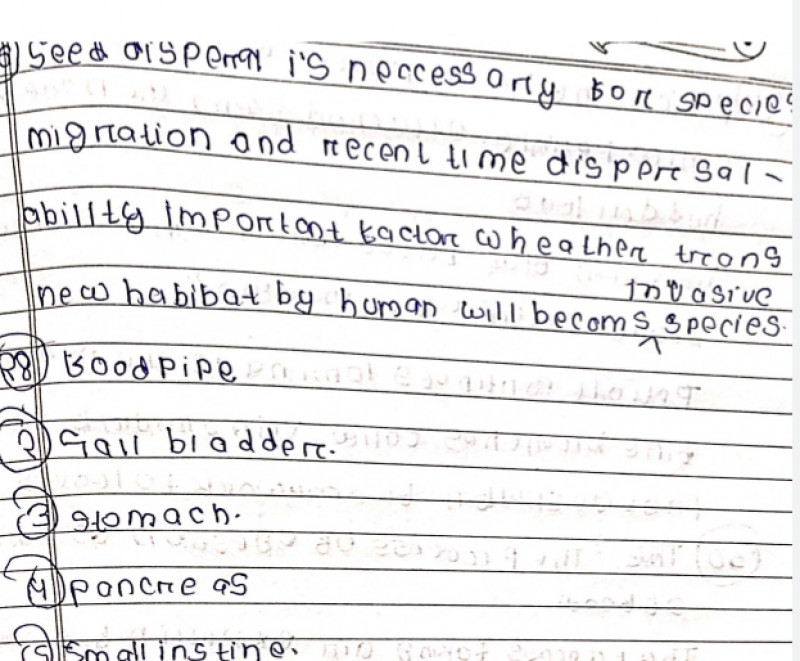 Seed dispersal is neccessary for species
migration and recent time dispersal-
ability important factor wheather trans
new habibat by human will becoms invasive species.
28) Foodpipe
2) Gall bladder.
3) stomach.
4) pancreas
5) small instine.